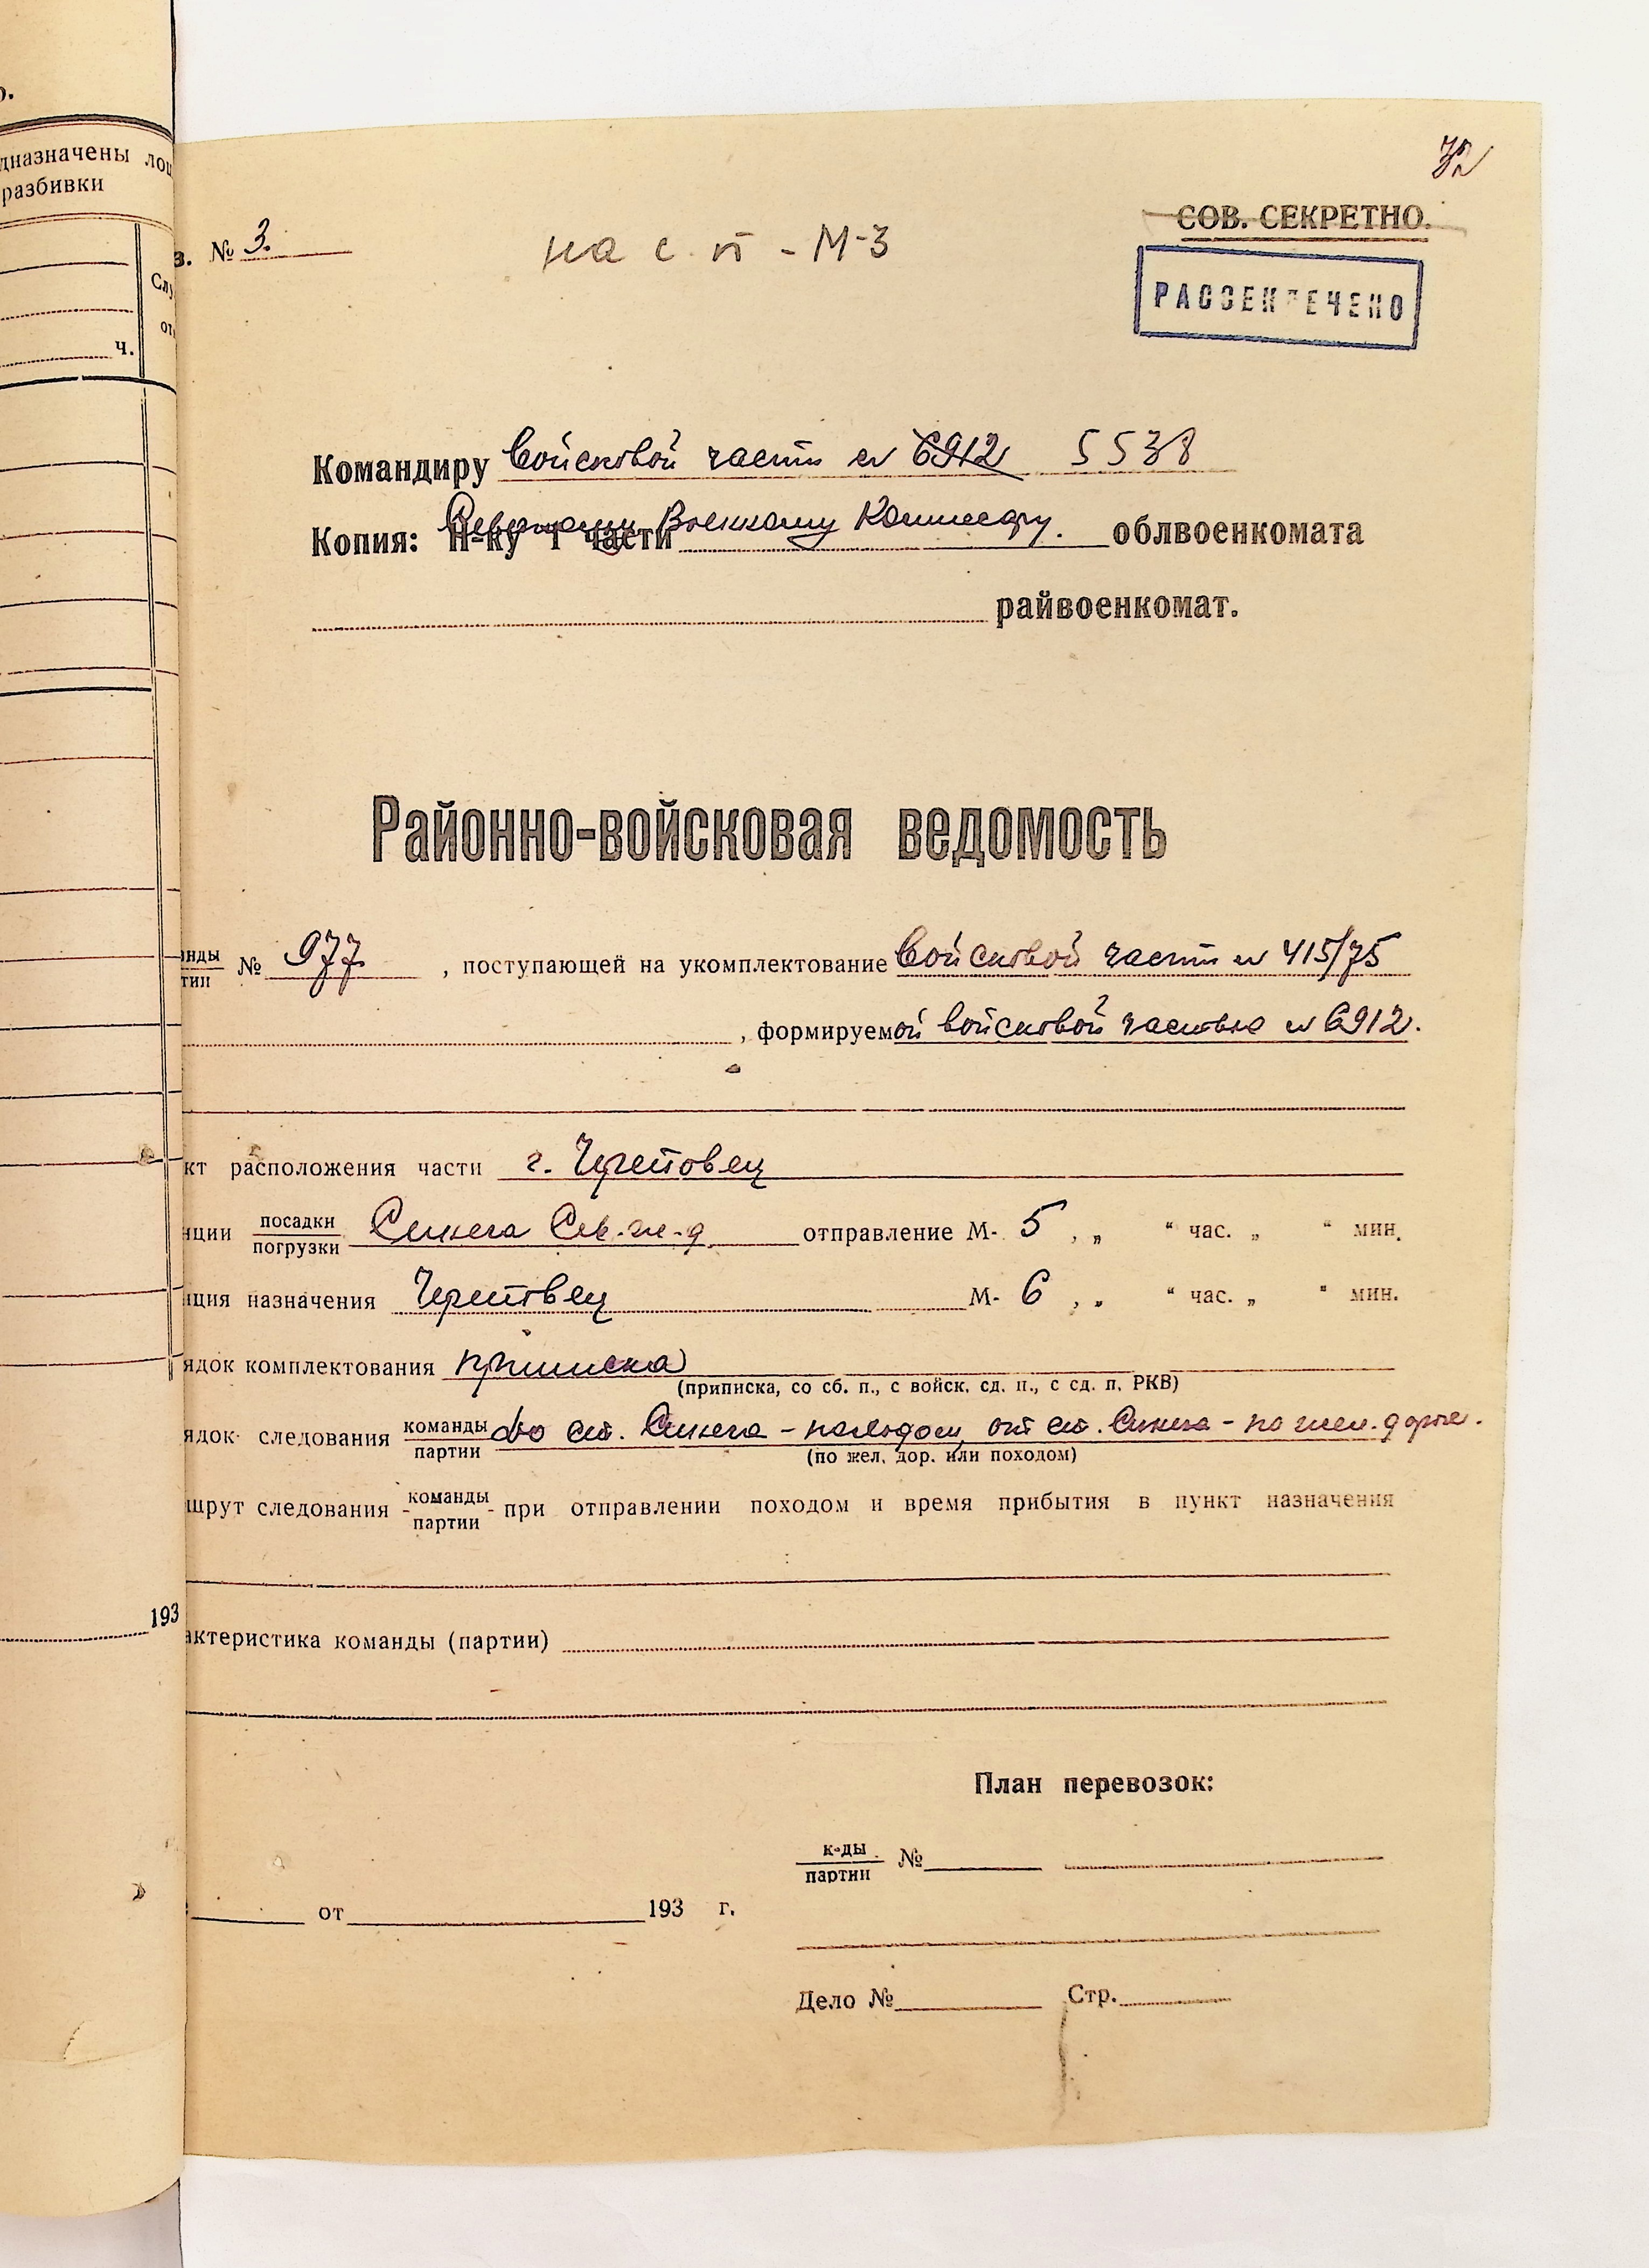 о.
дназначены лош
разбивки
Слу
от
ч.
193
72
СОВ. СЕКРЕТНО.
з. № 3.
на с. п - М-3
РАССЕКРЕЧЕНО
Командиру войсковой части № 6912 5538
Копия: Н-ку 1 части Военному Комиссару. облвоенкомата
райвоенкомат.
Районно-войсковая ведомость
нды
тии
№ 977, поступающей на укомплектование войсковой части № 415/75
, формируемой войсковой частью № 6912.
кт расположения части г. Череповец
нции посадки
погрузки
Сев. ж. д. отправление М- 5, „ “ час. „ “ мин.
нция назначения Череповец М- 6, „ “ час. „ “ мин.
ядок комплектования приписка
(приписка, со сб. п., с войск. сд. п., с сд. п. РКВ)
ядок следования команды
партии
до ст. - походом, от ст. - по жел. дороге.
(по жел. дор. или походом)
шрут следования команды
партии
при отправлении походом и время прибытия в пункт назначения
актеристика команды (партии)
План перевозок:
к-ды
партии
№
от 193 г.
Дело № Стр.